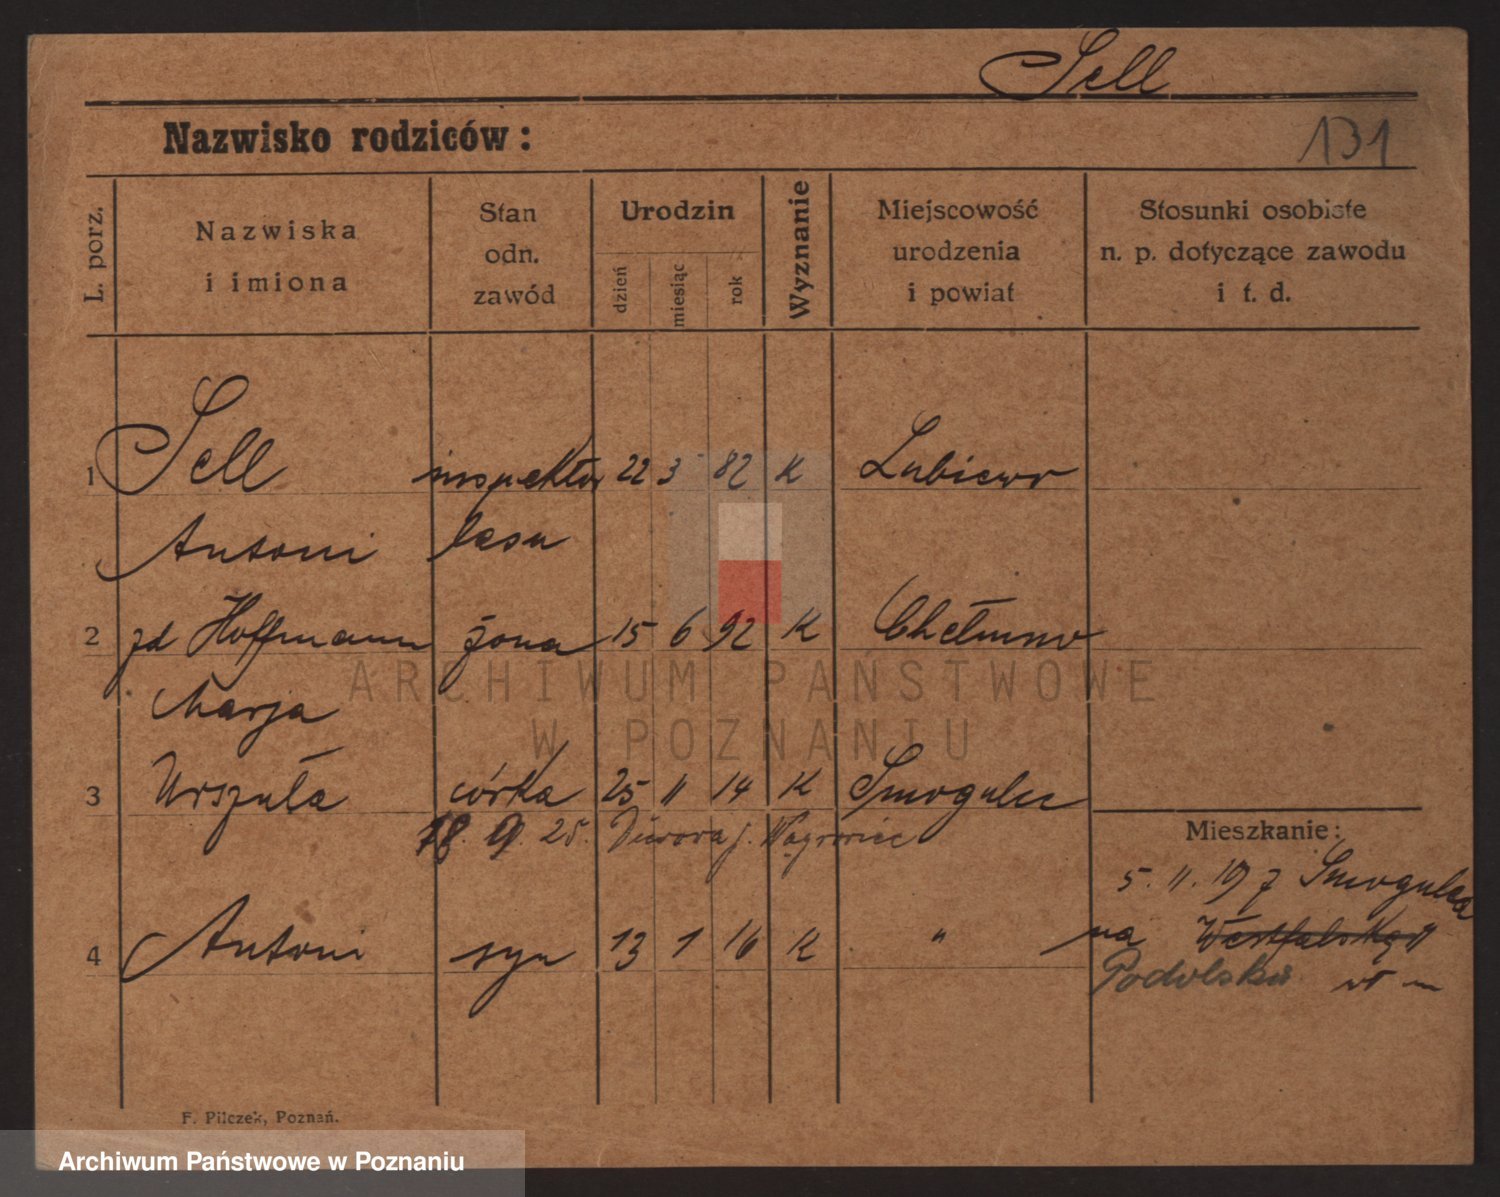 Sell
Nazwisko rodziców:
131
L. porz.
Nazwiska
i imiona
Stan
odn.
zawód
Urodzin
dzień
miesiąc
rok
Wyznanie
Miejscowość
urodzenia
i powiat
Stosunki osobiste
n. p. dotyczące zawodu
i t. d.
1 Sell inspektor 22 3 82 K Lubiewo
Antoni lasu
2 zd Hoffmann żona 15 6 92 K Chełmno
Marja
ARCHIWUM PAŃSTWOWE
W POZNANIU
3 Urszula córka 25 11 14 K Smogulec
18. 9. 25. Wągrowiec
Mieszkanie:
5. 11. 19 7 Smogulca
4 Antoni syn 13 1 16 K " na Westfalską 11
Podolska
F. Pilczek, Poznań.
Archiwum Państwowe w Poznaniu